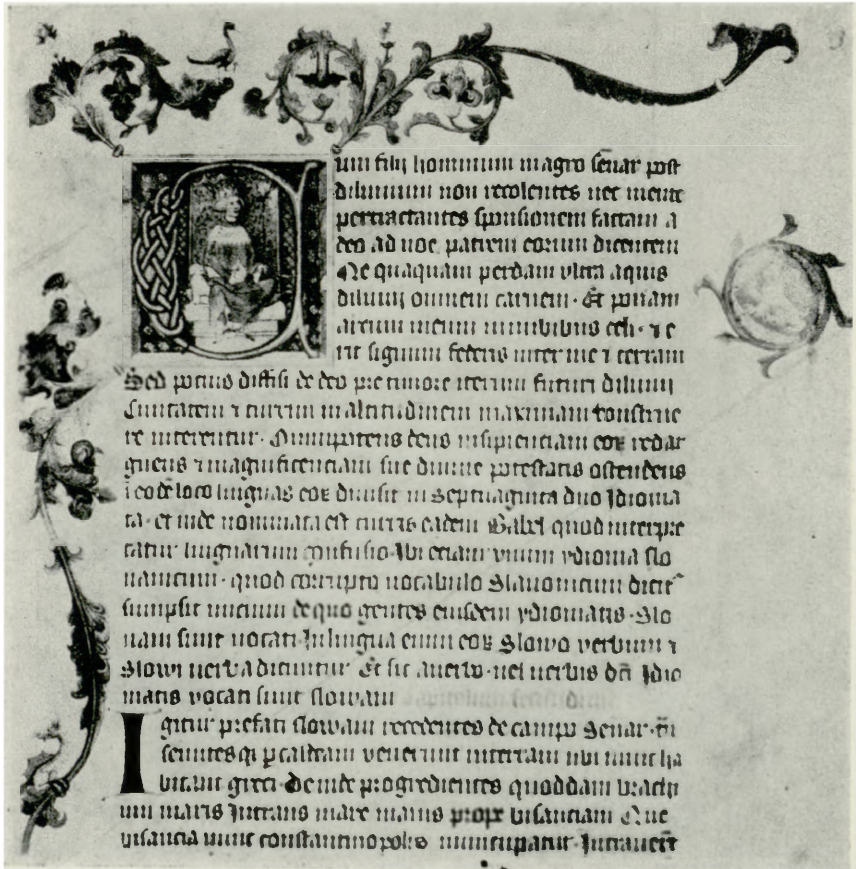 Cum filij hominum in agro sēnar post
diluuium non recolentes nec mente
pertractantes sponsionem factam a
deo ad noe patrem eorum dicentem
Ne quaquam perdam vltra aquis
diluuij omnem carnem · Et ponam
arcum meum in nubibus celi · ⁊ e
rit signum federis inter me ⁊ terram
Sed potius diffisi de deo pre timore iterum futuri diluuij
Ciuitatem ⁊ turrim in altitudinem maximam construe
re niterentur · Omnipotens deus insipienciam eoꝝ redar
guens ⁊ magnificenciam sue diuine potestatis ostendens
i eodē loco linguas eoꝝ diuisit in Septuaginta duo Idioma
ta · et inde nominata est turris eadem Babel quod interpre
tatur linguarum confusio · Ibi eciam vnum ydioma slo
uanicum · quod corrupto uocabulo Slauonicum dicit᷑
sumpsit inicium de quo gentes eiusdem ydiomatis · Slo
uani sunt uocati · In lingua enim eoꝝ Slowo verbum ⁊
Slowa uerba dicuntur Et sic a uerbo · uel uerbis dc̄i Idio
matis vocati sunt slowani
Igitur prefati slowani recedentes de campo Senar · tn̄
seuntes qͥ p caldeam venerunt in terram ubi nunc ha
bitant greci · Deinde progredientes quoddam brachi
um maris Intrans mare maius prope bisanciam Que
bisancia nunc constantinopolis nuncupatur Intrauerūt